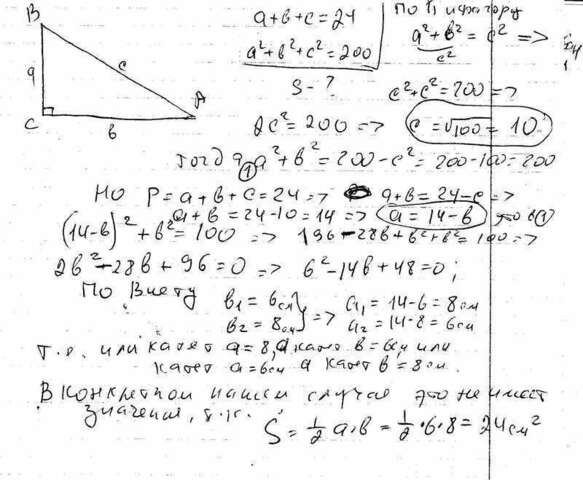 B
a
c
C
b
A
a+b+c=24
a²+b²+c²=200
S-?
По Пифагору
a²+b²=c² =>
c²
c²+c²=200 =>
2c²=200 => c=√100=10
Тогда a²+b²=200-c²=200-100=200
①
Но P=a+b+c=24 => a+b=24-c =>
a+b=24-10=14 => a=14-b это в ①
(14-b)²+b²=100 => 196-28b+b²+b²=100 =>
2b²-28b+96=0 => b²-14b+48=0;
По Виету b₁=6см } => a₁=14-6=8см
b₂=8см a₂=14-8=6см
т.е. или катет a=8, а катет b=6см или
катет a=6см а катет b=8см.
В конкретном нашем случае это не имеет
значения, т.к.
S=½a·b=½·6·8=24см²